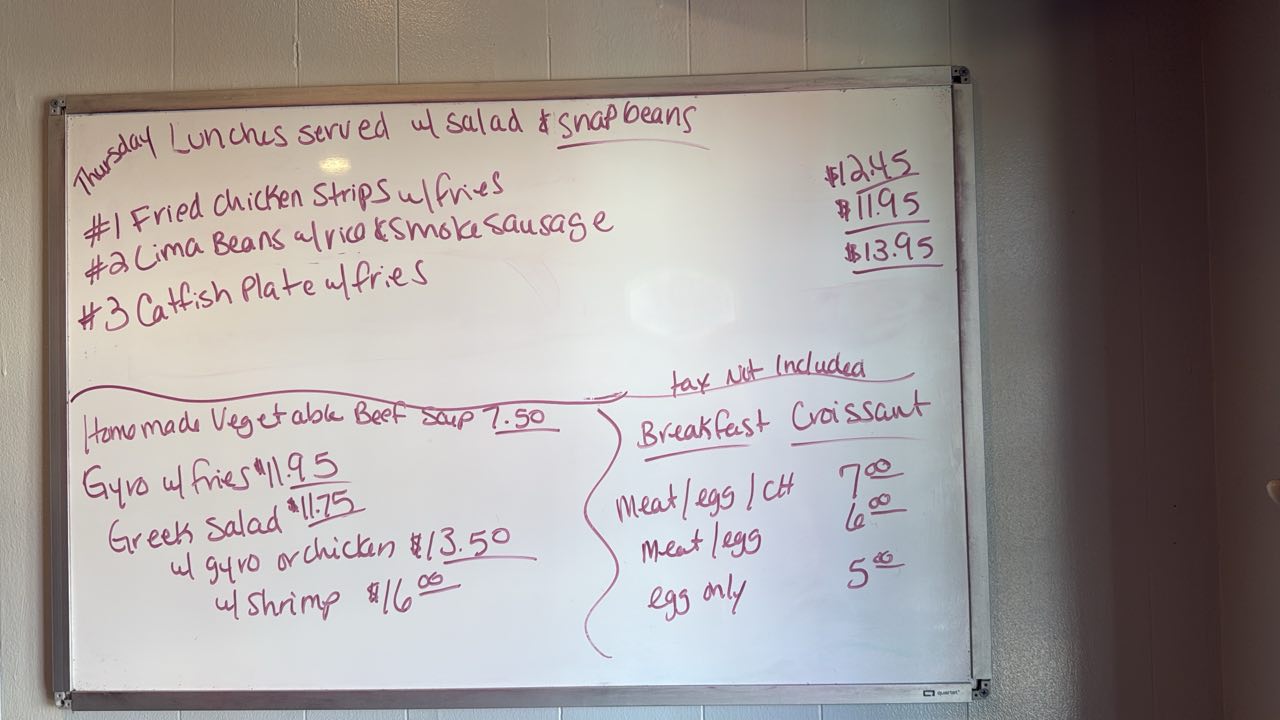 Thursday Lunches served w/ salad & snapbeans
#1 Fried chicken Strips w/fries $12.45
#2 Lima Beans w/rice & smoke sausage $11.95
#3 Catfish Plate w/fries $13.95
tax Not Included
Homemade Vegetable Beef Soup 7.50
Gyro w/fries $11.95
Greek Salad $11.75
w/ gyro or chicken $13.50
w/ shrimp $16.00
Breakfast Croissant
Meat/egg/CH 7.00
Meat/egg 6.00
egg only 5.00
quartet